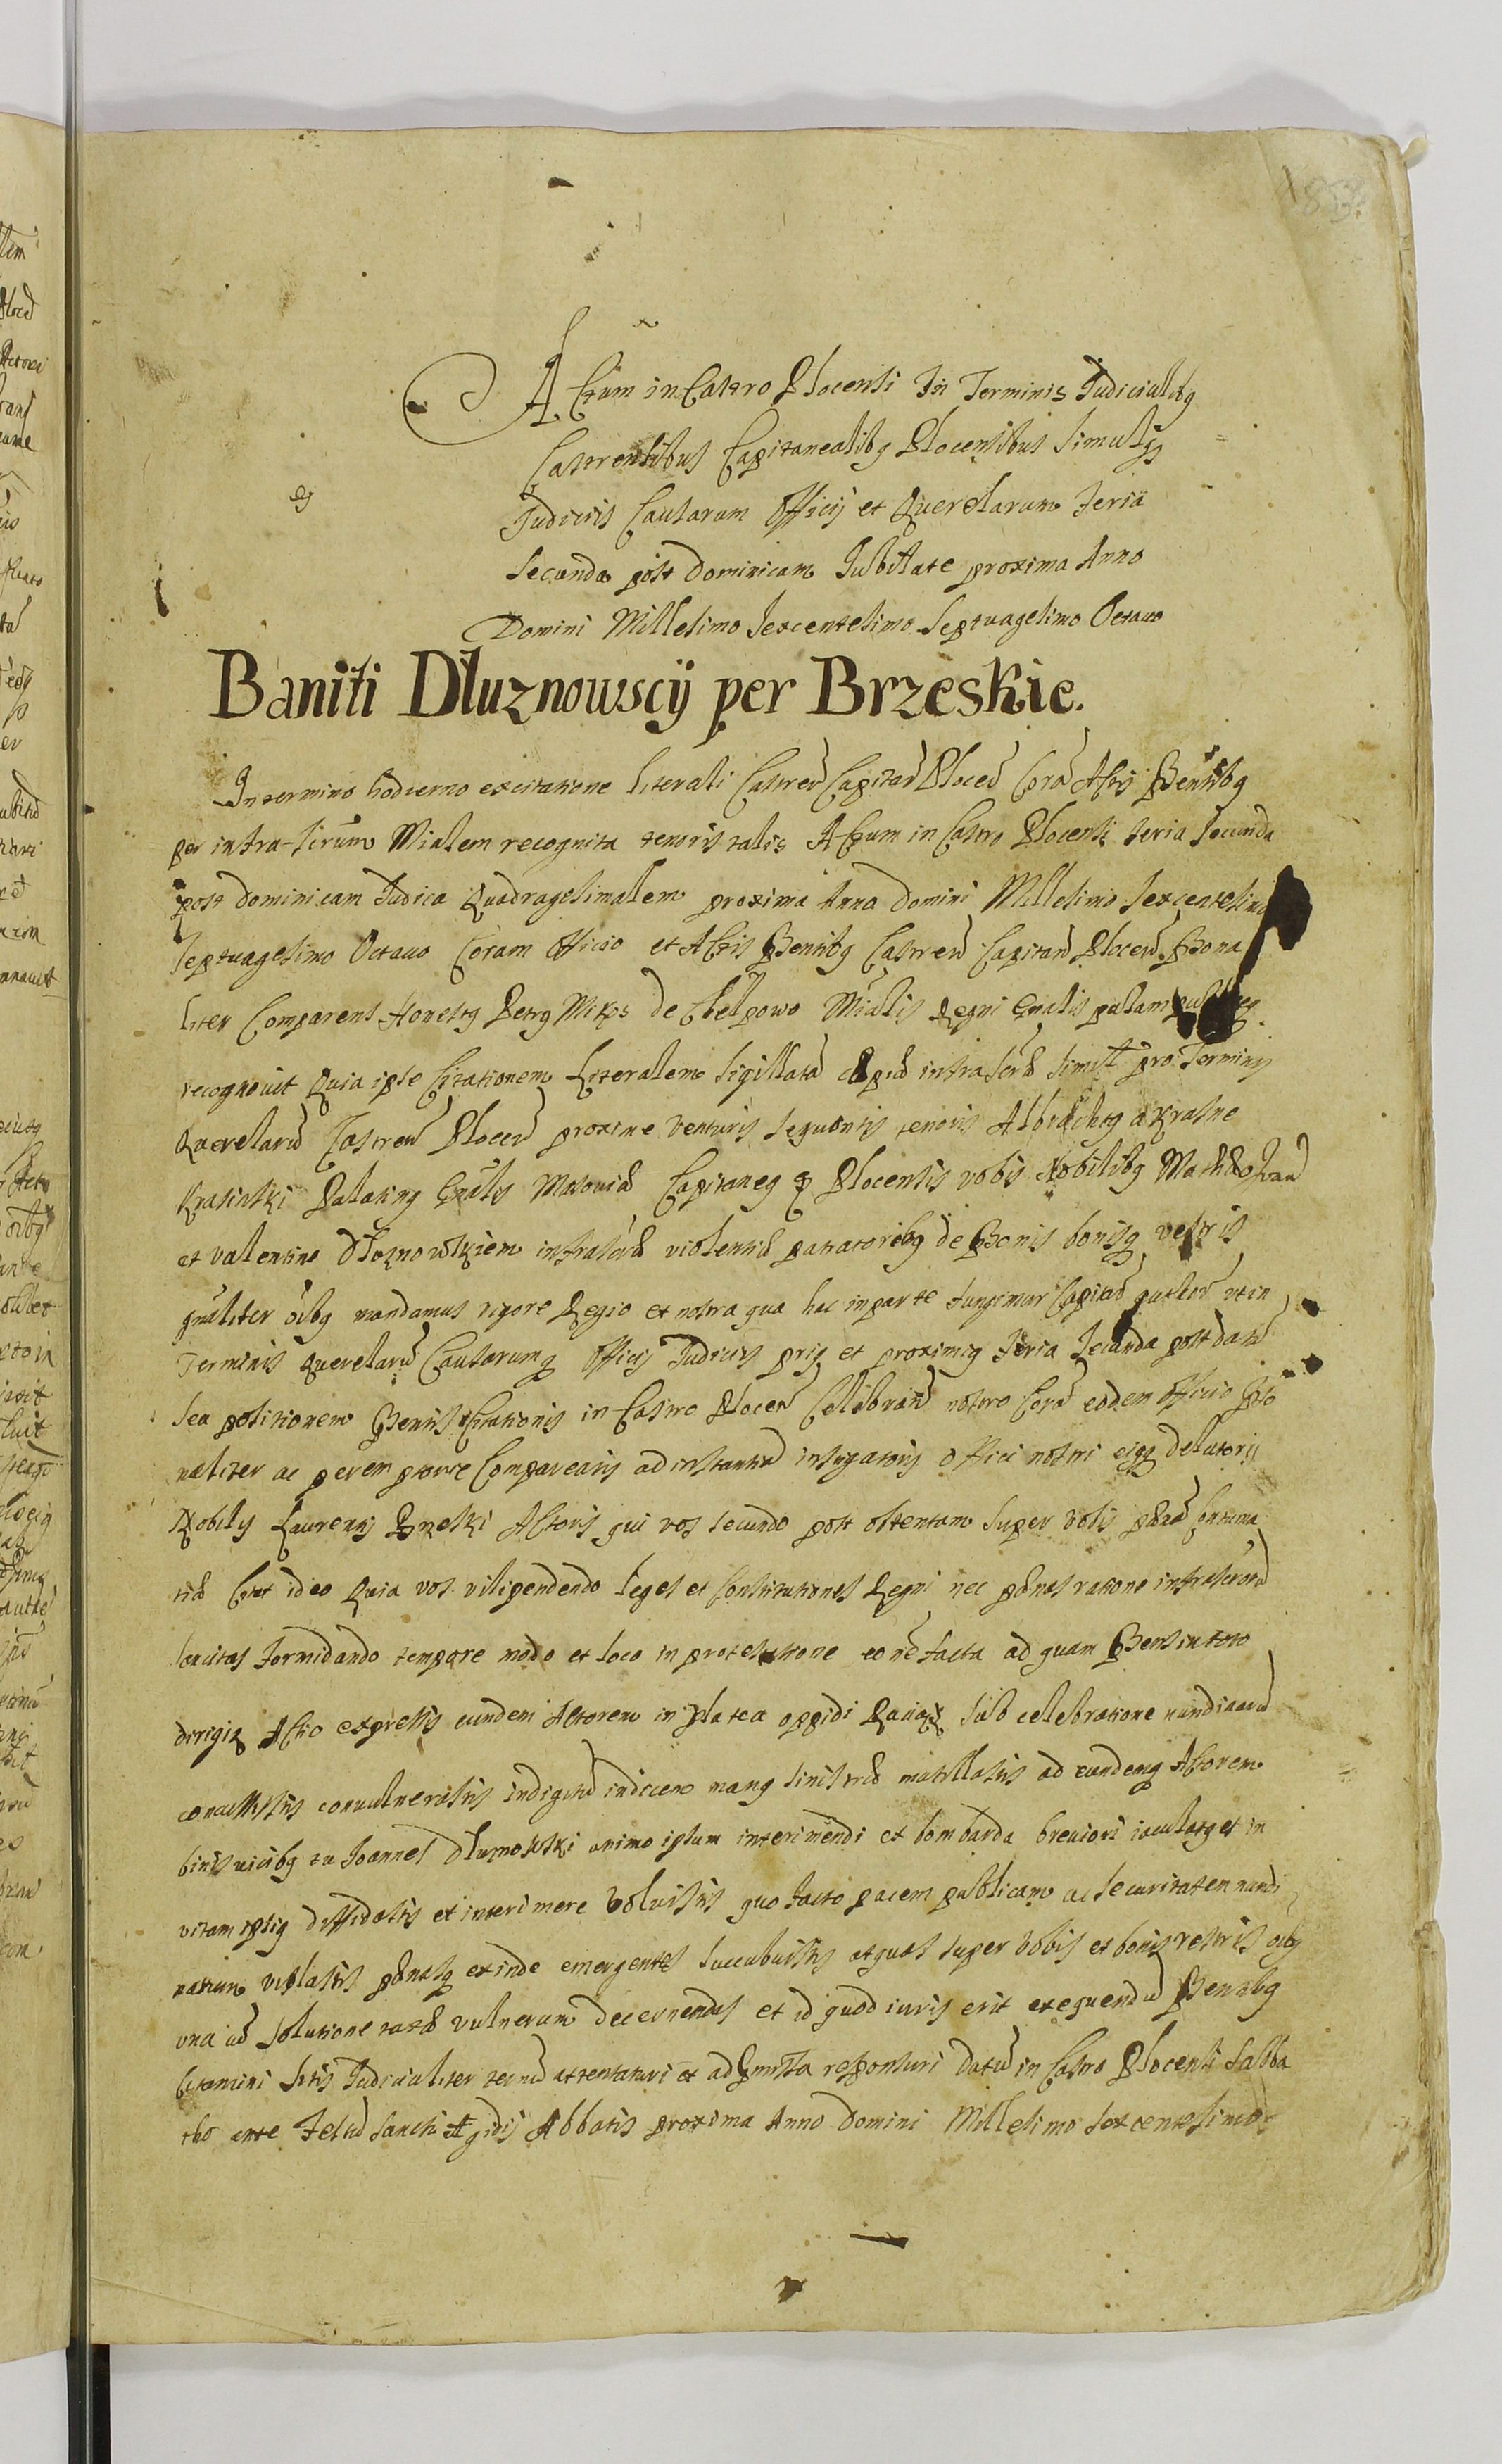 183
Actum in Castro Plocensi In Terminis Judicialibq
Castrensibus Capitanealibq Plocensibus simulqz
Judiciis Causarum Officij et Querelarum Feria
secunda post Dominicam Jubilate proxima Anno
Domini Millesimo Sexcentesimo Septuagesimo Octauo
Baniti Dluznowscÿ per Brzeskie.
In termino hodierno ex citatione literali Castren Capitan Plocen Cora Actis Pentibq
per infra scrum Mialem recognita tenoris talis Actum in Castro Plocensi feria secunda
post dominicam Judica Quadragesimalem proxima Anno Domini Millesimo Sexcentesimo
Septuagesimo Octauo Coram Officio et Actis Pentibq Castren Capitan Plocen Psona
liter Comparens Honestq Petrq Mikos de Chelpowo Mialis Regni Gnalis palam
recognouit Quia ipse Citationem Literalem Sigillata infrascrã simul pro Terminis
Querelaru Castren Plocen proxime venturis sequentis tenoris Albrachtq a Krasne
Krasinski Palatinq Gnalis Masouiæ Capitaneq Plocensis vobis Nobilibq Mathæo Joan
et Valentino Dluznowskiem infrascrã violentiæ patratoribq de Psonis bonisq vestris
gnaliter oibq mandamus rigore Regio et nostra qua hac in parte fungimur Capitan ut in
Terminis Querelaru Causarumq Officij Judiciis pris et proximiq Feria Secunda post dat
seu positionem Pentis Citationis in Castro Plocen Celebran nostro Cora eodem Officio Pso
naliter ac peremptorie Compareatis ad instantia instigatoris Officij nostri eiqz delatoris
Nobilis Laurentij Brzeski Actoris qui vos secundo post obtentam super vobis Contuma
tiã Citat ideo Quia vos vilipendendo leges et Constitutiones Regni nec pænas ratione infrascrotu
sancitas formidando tempore modo et loco in protestatione eo noe facta ad quam Pens in toto
dirigiz Actio expressis eundem Actorem in platea oppidi Raciąż sub celebratione nundinaru
concussistis convulnerastis indigitu indicem manq sinistræ mutillastis ad eundemq Actorem
binis vicibq tu Joannes Dluznowski animo ipsum interimendi ex bombarda breuiori iaculatq et in
vitam ipsiq diffidastis et interimere voluistis quo facto pacem publicam ac securitatem nundi
narum violastis pænasq exinde emergentes succubuistis atquas super vobis et bonis vestris oibq
una cu solutione taxæ vulnerum decernendas et id quod iuris erit exequendu Pentibq
Citamini Sitis Judicialiter attentaturi et ad Pmissa responsuri Datu in Castro Plocensi Sabba
tho ante Festu Sancti Ægidij Abbatis proxima Anno Domini Millesimo Sexcentesimo